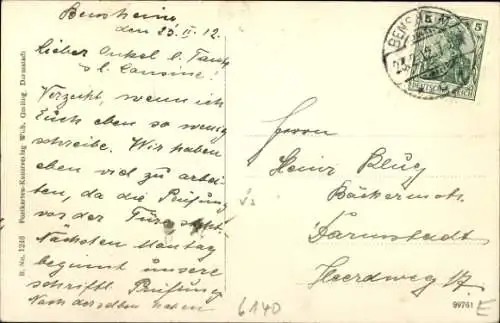 Bensheim,
den 23. II. 12.
Lieber Onkel l. Tante
u. l. Cousine!
Verzeiht, wenn ich
Euch eben so wenig
schreibe. Wir haben
eben viel zu arbei-
ten, da die Prüfung
vor der Türe steht.
Nächsten Montag
beginnt unsere
schriftl. Prüfung
Nach derselben haben
R. No. 1248 Postkarten-Kunstverlag Wilh. Gerling, Darmstadt
BENSHEIM
5
DEUTSCHES REICH
Herrn
Heinr. Blug
Bäckermstr.
Darmstadt
Heerdweg 17.
6140
99761
E